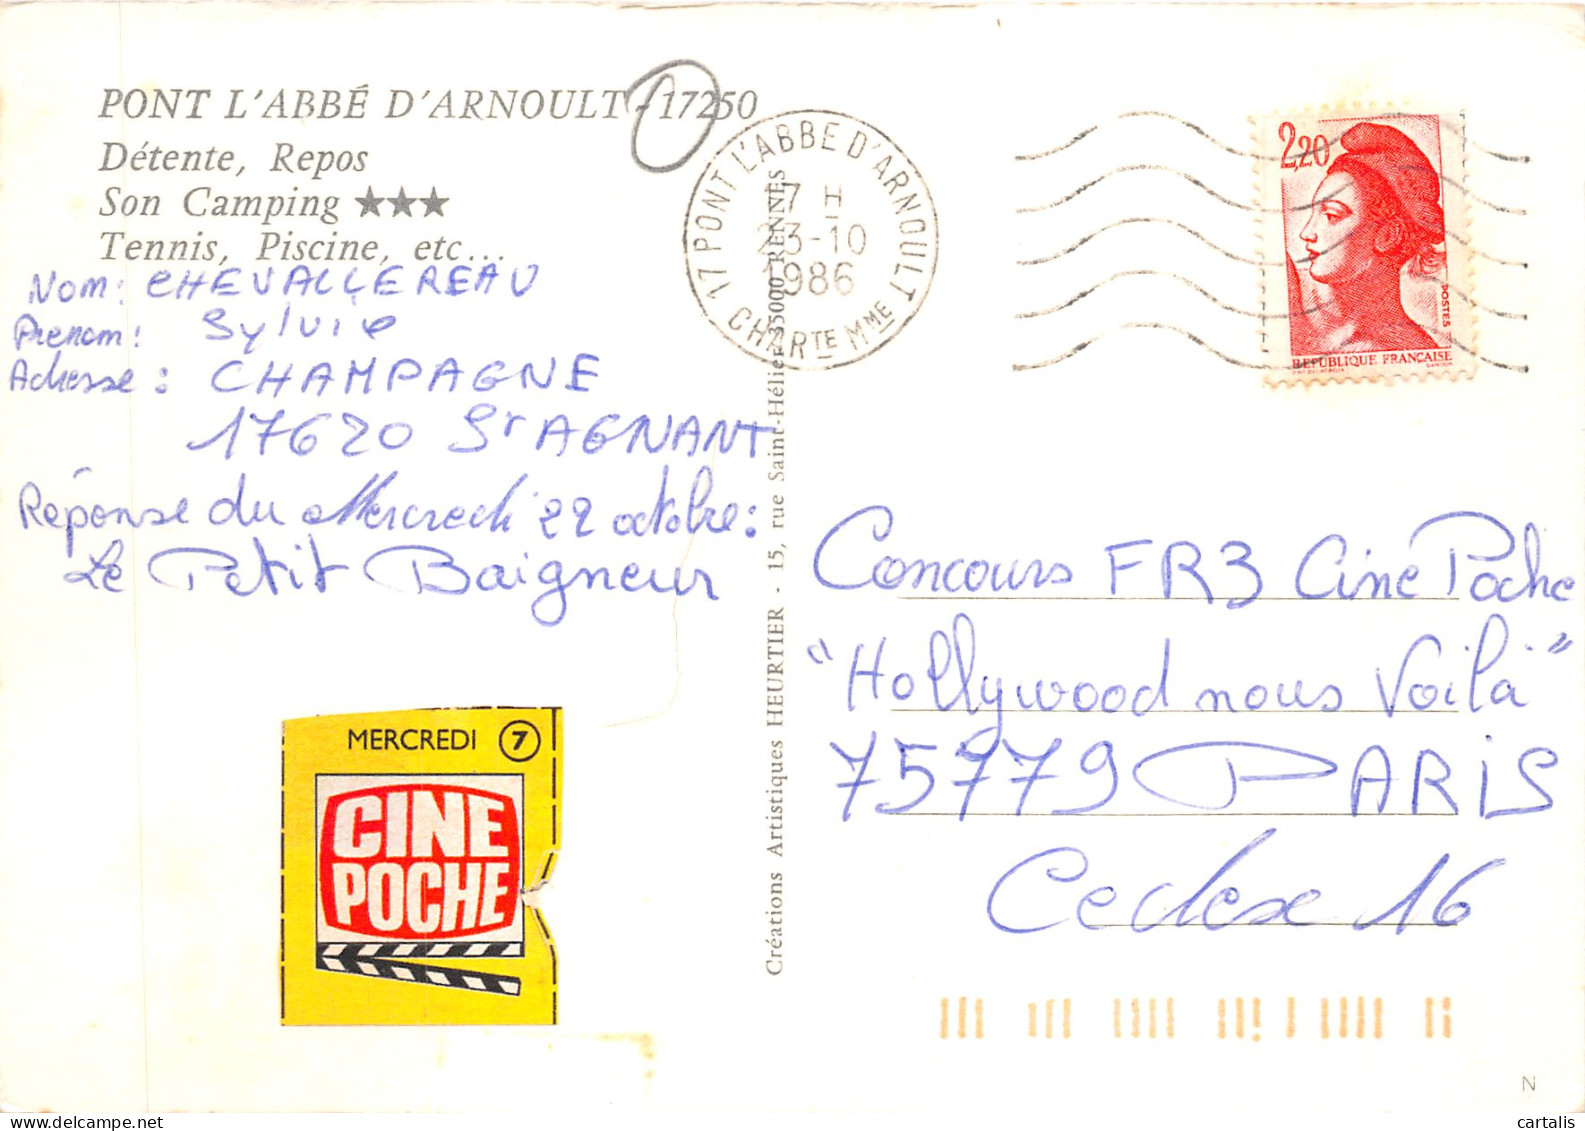 PONT L'ABBÉ D'ARNOULT - 17250
Détente, Repos
Son Camping ★★★
Tennis, Piscine, etc...
Nom: CHEVALLEREAU
Prenom: Sylvie
Adresse: CHAMPAGNE
17620 St AGNANT
Réponse du Mercredi 22 octobre:
Le Petit Baigneur
MERCREDI 7
CINE
POCHE
Créations Artistiques HEURTIER - 15, rue Saint-Hélier 35000 RENNES
17 PONT L'ABBE D'ARNOULT
7 H
23-10
1986
CHARTE MME
2,20
POSTES
REPUBLIQUE FRANÇAISE
Concours FR3 Cine Poche
"Hollywood nous Voilà"
75779 PARIS
Cedex 16
N
cartalis